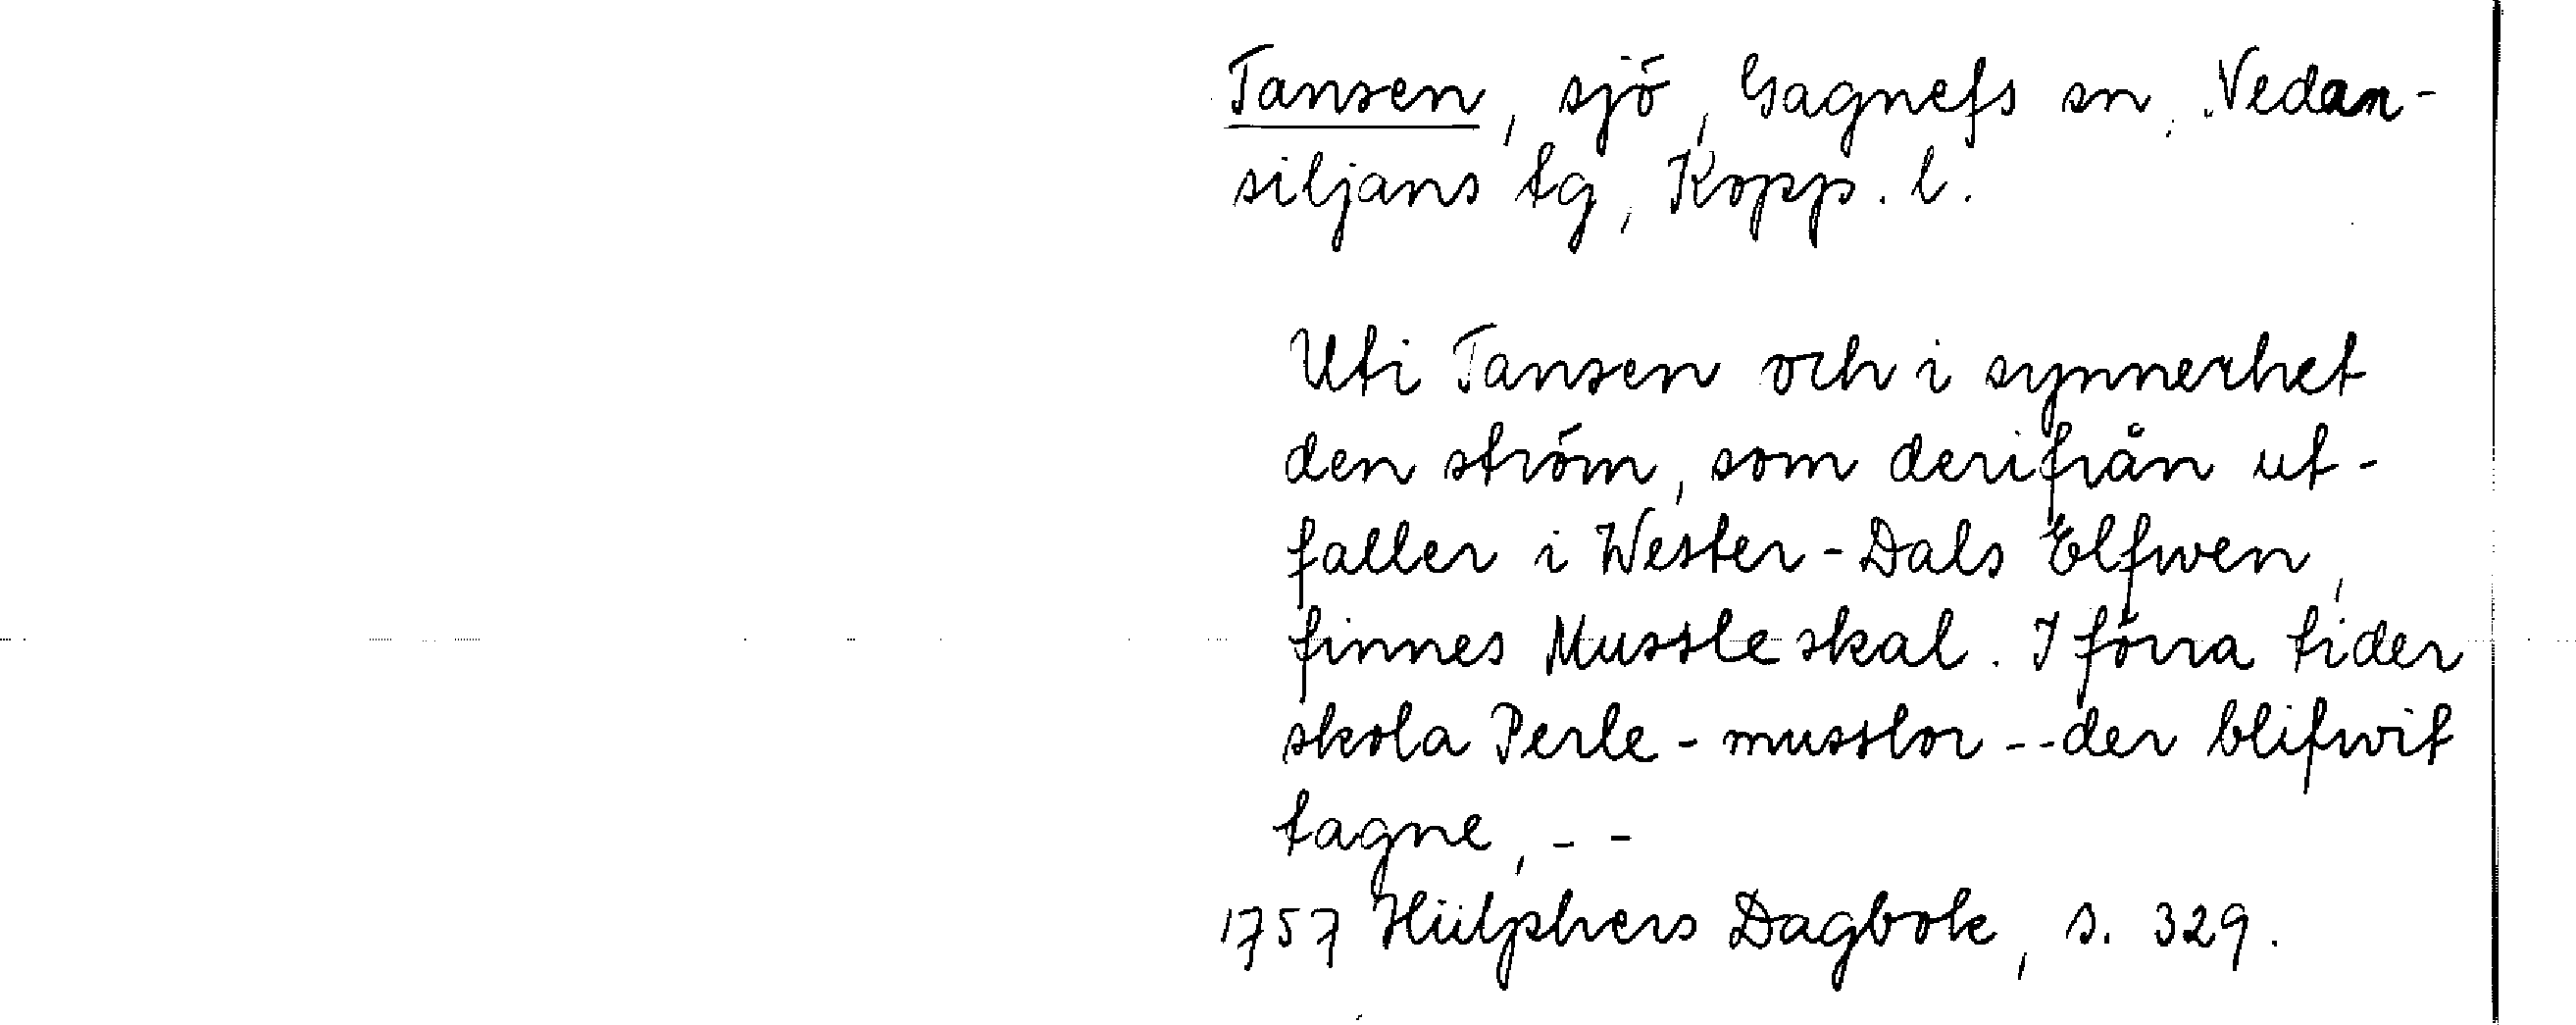 Tansen, sjö, Gagnefs sn, Nedan-
siljans tg, Kopp. l.
Uti Tansen och i synnerhet
den ström, som derifrån ut-
faller i Wester-Dals Elfwen,
finnes Mussleskal. I förra tider
skola Perle-musslor -- der blifwit
tagne, - -
1757 Hülphers Dagbok, s. 329.